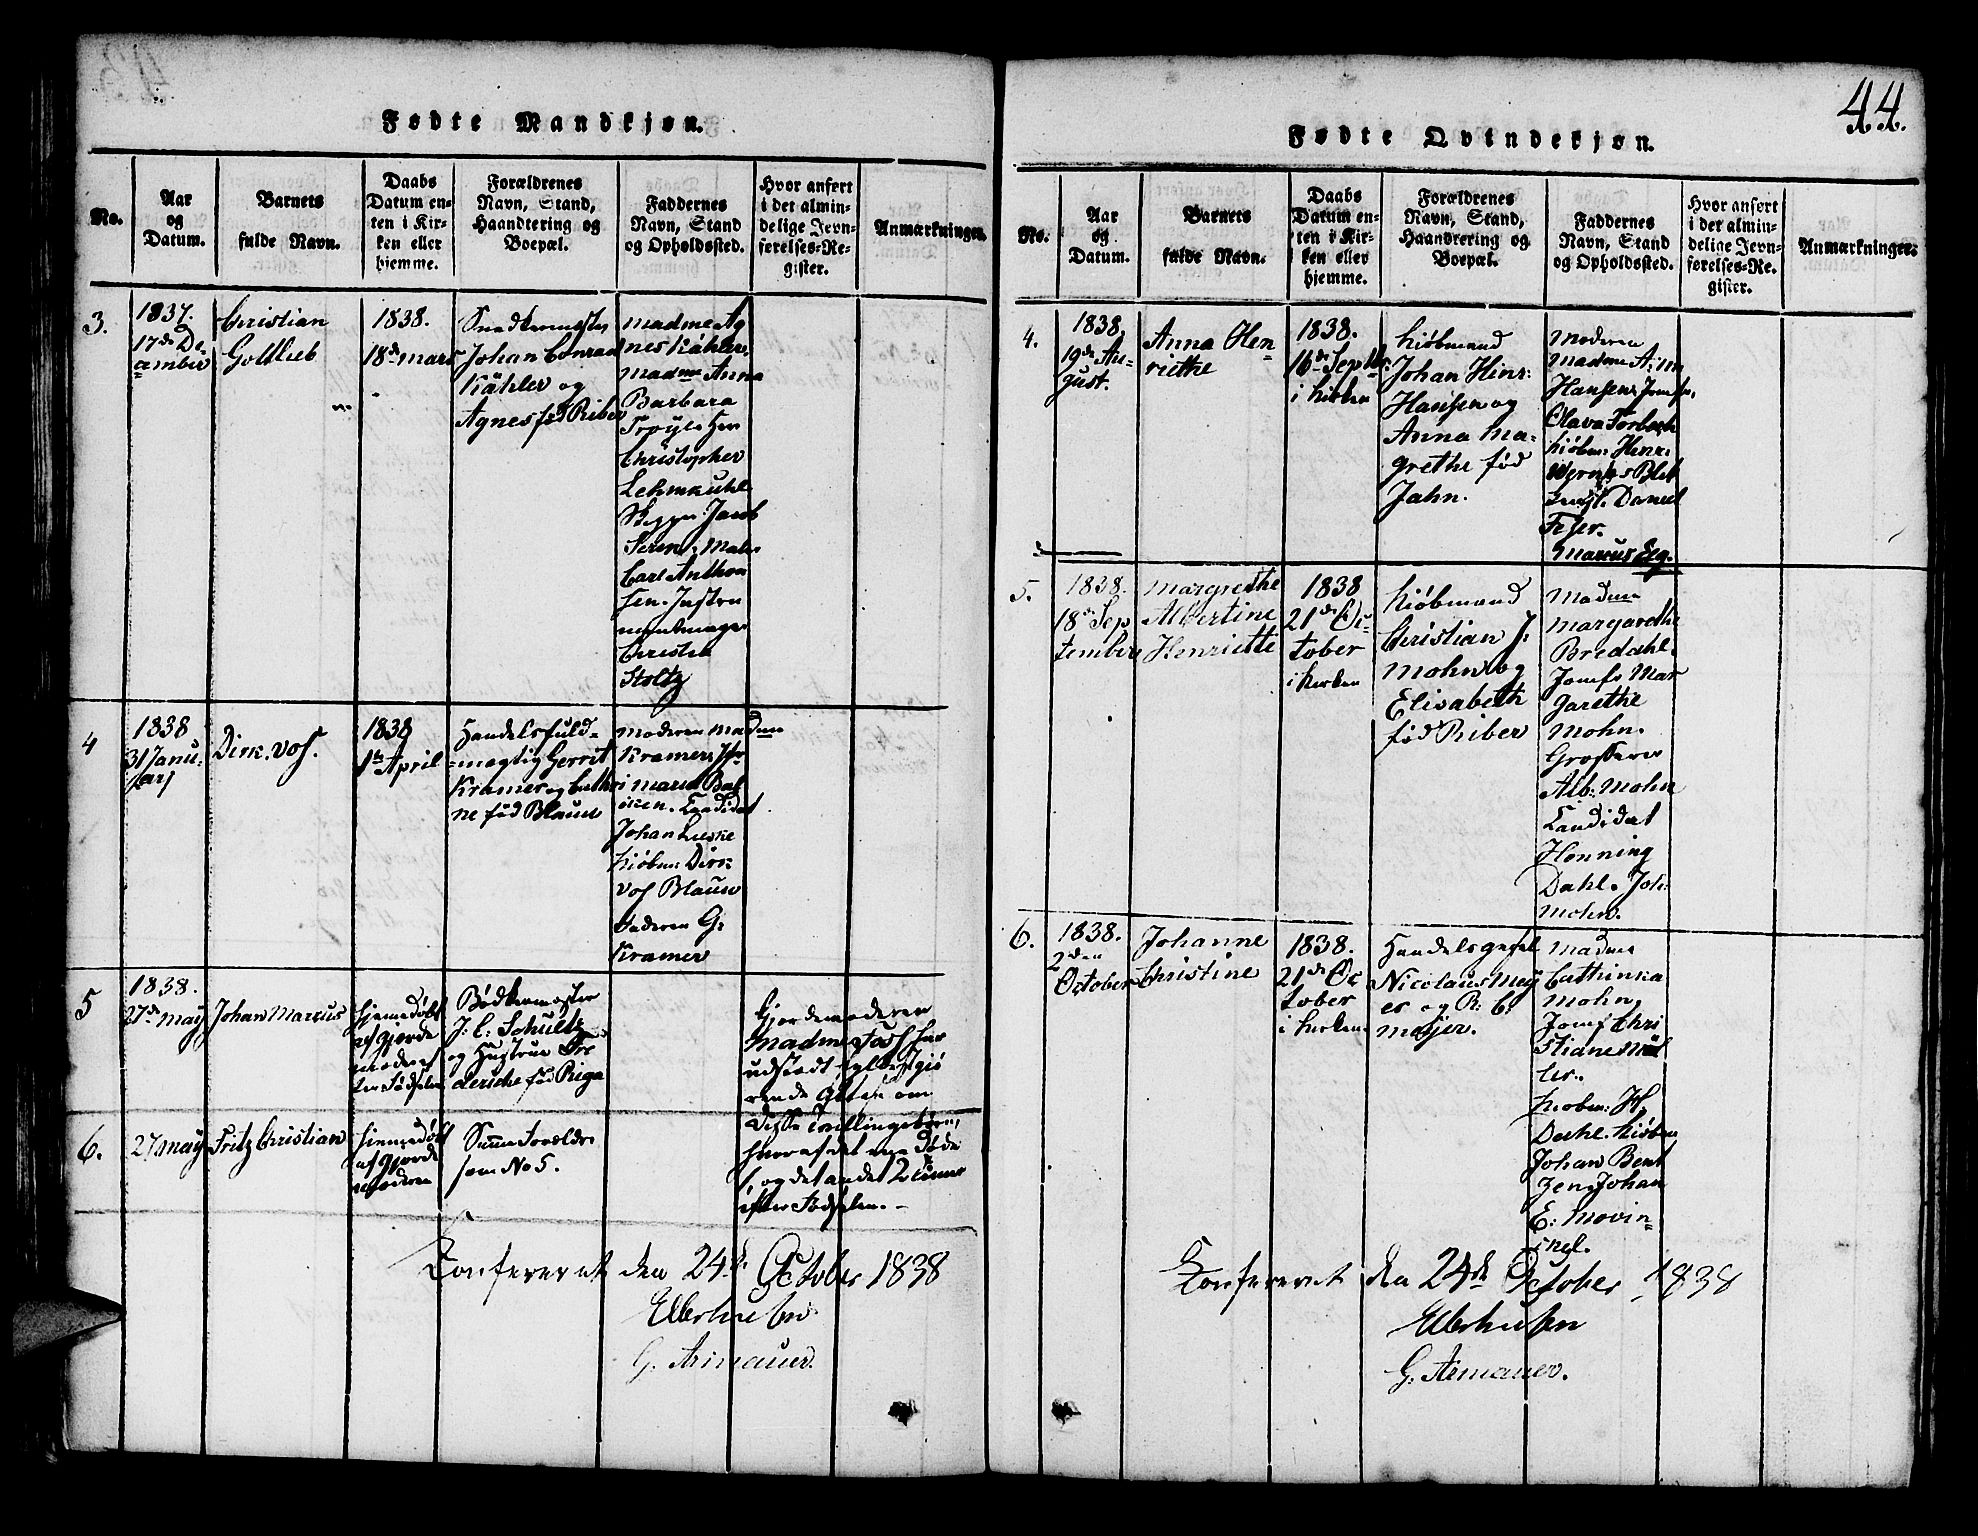 44.
Fødte Mandkjøn.
No.
Aar
og
Datum.
Barnets
fulde Navn.
Daabs
Datum en-
ten i Kir-
ken eller
hjemme.
Forældrenes
Navn, Stand,
Haandtering og
Boepæl.
Faddernes
Navn, Stand
og Opholdssted.
Hvor anført
i det almin-
delige Jevn-
førelses-Re-
gister.
Anmærkninger.
3.
1837.
17de De-
cember
Christian
Gottlieb
1838.
18de Mars
Snedkermester
Johan Conrad
Kähler og
Agnes fød Riber
Madme Ag
nes Kähler,
Madme Anna
Barbara
Herr
Christopher
Lehmkuhl
Skipper Jacob
Carl Anthon
sen. Instru
mentmager
Christia
Stoltz
4
1838
31 Janu-
arj
Dirk Vos.
1838
1te April
Handelsfuld-
mægtig Gerrit
Kramer og Cathri
ne fød Blauw
Moderen Madme
Kramer, Jfr
Maria
Candidat
Johan Lieske
Kiøbm: Dirk
Vos Blauw
Faderen G:
Kramer
5
1838.
27de May
Johan Marcus
hjemedøbt
af Gjorde
moderen ef
ter Fødselen
Bødkermester
J: C: Schultz
og Hustrue Fre
dericke fød Riga
Gjordemoderen
Madme Fasz har
udstædt fyldestgiø
rende Attest om
disse Tvillingebørn,
hvoraf det ene døde
1, og det andet 2 Timer
efter Fødselen.
6.
27 May
Fritz Christian
hiemedøbt
af Gjorde
moderen
Samme Forældre
som No 5.
Confereret den 24de October 1838
Ellerhusen
G. Armauer.
Fødte Qvindekjøn.
No.
Aar
og
Datum.
Barnets
fulde Navn.
Daabs
Datum en-
ten i Kir-
ken eller
hjemme.
Forældrenes
Navn, Stand,
Haandtering og
Boepæl.
Faddernes
Navn, Stand
og Opholdssted.
Hvor anført
i det almin-
delige Jevn-
førelses-Re-
gister.
Anmærkninger.
4.
1838.
19de Au-
gust.
Anna Hen-
riethe
1838.
16de Septbr
i Kirken
Kiøbmand
Johan Hinr:
Hansen og
Anna Ma-
grethe fød
Jahn.
Moderen
Madme A: M
Hansen, Jomfr,
Olava
Kiøbm: Henr:
Daniel
Marcus Eeg.
5.
1838.
18de Sep
tember
Margrethe
Albertine
Henriette
1838
21de Oc-
tober
i Kirken
Kiøbmand
Christian J:
Mohn og
Elisabeth
fød Riber
Madme
Margarethe
Bredahl.
Jomfr Mar
garethe
Mohn.
Grosserer
Alb: Mohn
Candidat
Henning
Dahl. Joh:
Mohn.
6.
1838.
2den
October
Johanne
Christine
1838.
21de Oc
tober
i Kirken
Handelsgesel
Nicolaus Mey
er og R: C:
Meyer.
Madme
Cathinka
Mohn
Jomf Chri
stiane Möl
ler.
Kiøbm: H
Dahl. Kiøbm
Johan Bent
zen, Johan
E: Movin-
ckel.
Confereret den 24de October 1838
Ellerhusen
G. Armauer.